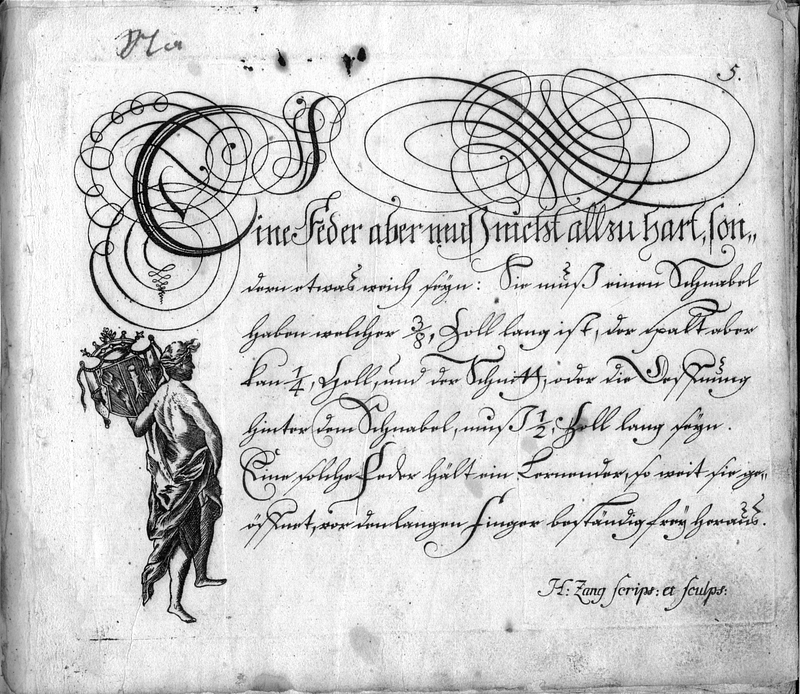 5.
Eine Feder aber muß nicht allzu hart, son„
dern etwas weich seyn: Sie muß einen Schnabel
haben welcher 3/8, Zoll lang ist, der Spalt aber
kan 1/4, Zoll, und der Schnitt, oder die Oeffnung
hinter dem Schnabel, muß 1/2, Zoll lang seyn.
Eine solche Feder hält ein Lernender, so weit sie ge„
öffnet, vor den langen Finger beständig frey heraus.
H: Zang scrips: et sculps: